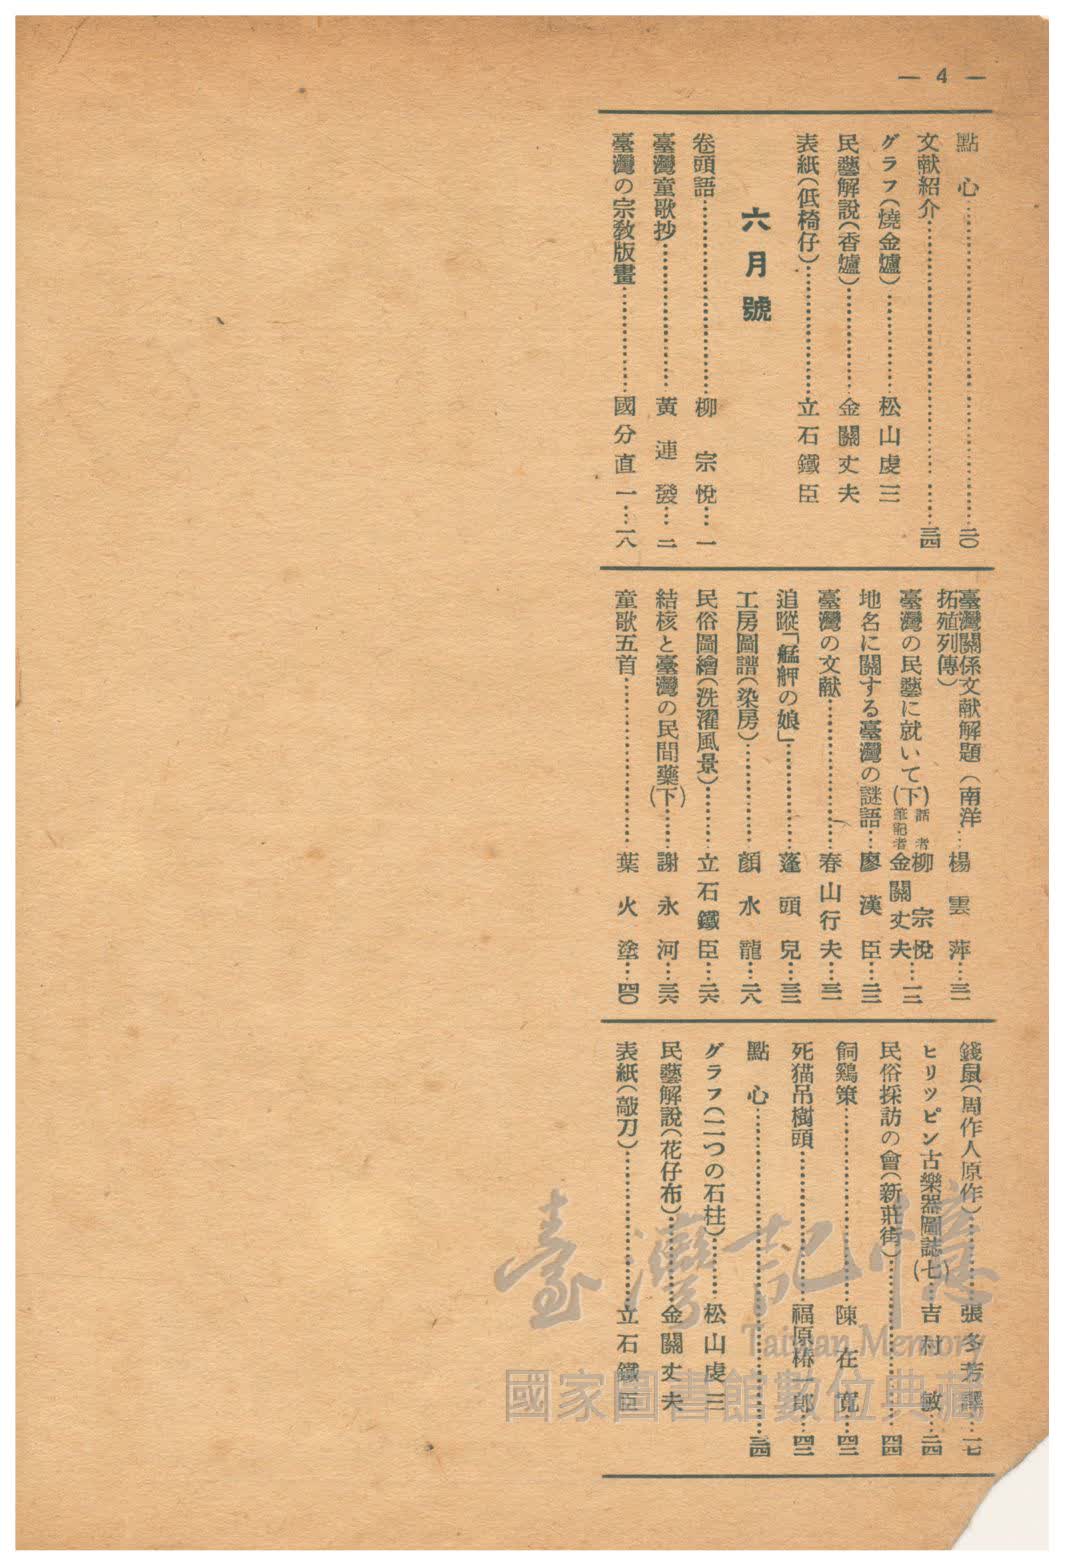 — 4 —
點心……二〇
文献紹介……三四
グラフ(燒金爐)……松山虔三
民藝解說(香爐)……金關丈夫
表紙(低椅仔)……立石鐵臣
六月號
卷頭語……柳宗悅…一
臺灣童歌抄……黃連發…二
臺灣の宗教版畫……國分直一…一八
臺灣關係文献解題(南洋拓殖列傳)…楊雲萍…三一
臺灣の民藝に就いて(下)話者柳宗悅筆記者金關丈夫…一二
地名に關する臺灣の謎語…廖漢臣…二三
臺灣の文献……春山行夫…三二
追蹤「艋舺の娘」……蓬頭兒…三三
工房圖譜(染房)……顏水龍…二八
民俗圖繪(洗濯風景)……立石鐵臣…二六
結核と臺灣の民間藥(下)……謝永河…三六
童歌五首……葉火塗…四〇
錢鼠(周作人原作)……張多芳譯…一七
ヒリッピン古樂器圖誌(七)…吉村敏…二四
民俗採訪の會(新莊街)……四四
飼鷄策……陳在寬…四三
死猫吊樹頭……福原椿一郎…四三
點心……三四
グラフ(二つの石柱)……松山虔三
民藝解說(花仔布)……金關丈夫
表紙(敲刀)……立石鐵臣
臺灣記憶
Taiwan Memory
國家圖書館數位典藏